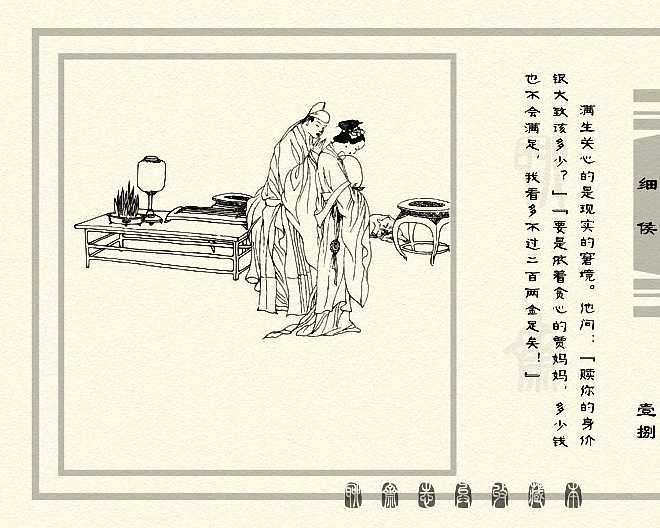 满生关心的是现实的窘境。他问：「赎你的身价
银大致该多少？」「要是依着贪心的贾妈妈，多少钱
也不会满足，我看多不过二百两金足矣！」
细侯
壹捌
聊斋志异收藏本